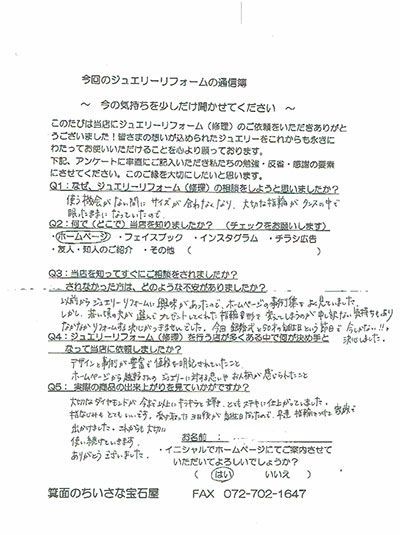 今回のジュエリーリフォームの通信簿
～ 今の気持ちを少しだけ聞かせてください ～
このたびは当店にジュエリーリフォーム（修理）のご依頼をいただきありがと
うございました！皆さまの想いが込められたジュエリーをこれからも永きに
わたってお使いいただけることを心より願っております。
下記、アンケートに率直にご記入いただき私たちの勉強・反省・感謝の要素
にさせてください。このご縁を大切にしたいと思います。
Q1：なぜ、ジュエリーリフォーム（修理）の相談をしようと思いましたか？
使う機会がない間に サイズが合わなくなり、大切な指輪が タンスの中で
眠ったままになっていたので。
Q2：何で（どこで）当店を知りましたか？ （チェックをお願いします）
・ホームページ ・フェイスブック ・インスタグラム ・チラシ広告
・友人・知人のご紹介 ・その他（ ）
Q3：当店を知ってすぐにご相談をされましたか？
されなかった方は、どのような不安がありましたか？
以前からジュエリーリフォームに興味があったので、ホームページの事例集を見ていました。
しかし、若い頃の夫が選んでプレゼントしてくれた指輪の形が変わってしまうのが申し訳ない気持ちもあり
なかなかリフォームを決心ができませんでした。今回 銀婚式と
決心しました。
Q4：ジュエリーリフォーム（修理）を行う店が多くある中で何が決め手と
なって当店に依頼しましたか？
デザインと事例が豊富で値段も明記されていたこと
ホームページから ジュエリーに対する思いや お人柄が感じられたこと
Q5： 実際の商品の出来上がりを見ていかがですか？
大切なダイヤモンドが今まで以上にキラキラと輝き、とてもステキに仕上がっていました。
指なじみも とても いいです。受け取った3日後が誕生日だったので、早速 指輪をつけて 家族で
出かけました。これからも大切に
使い続けていきます。
ありがとうございました。
お名前：
・イニシャルでホームページにてご案内させて
いただいてよろしいでしょうか？
（ はい いいえ ）
箕面のちいさな宝石屋 FAX 072-702-1647